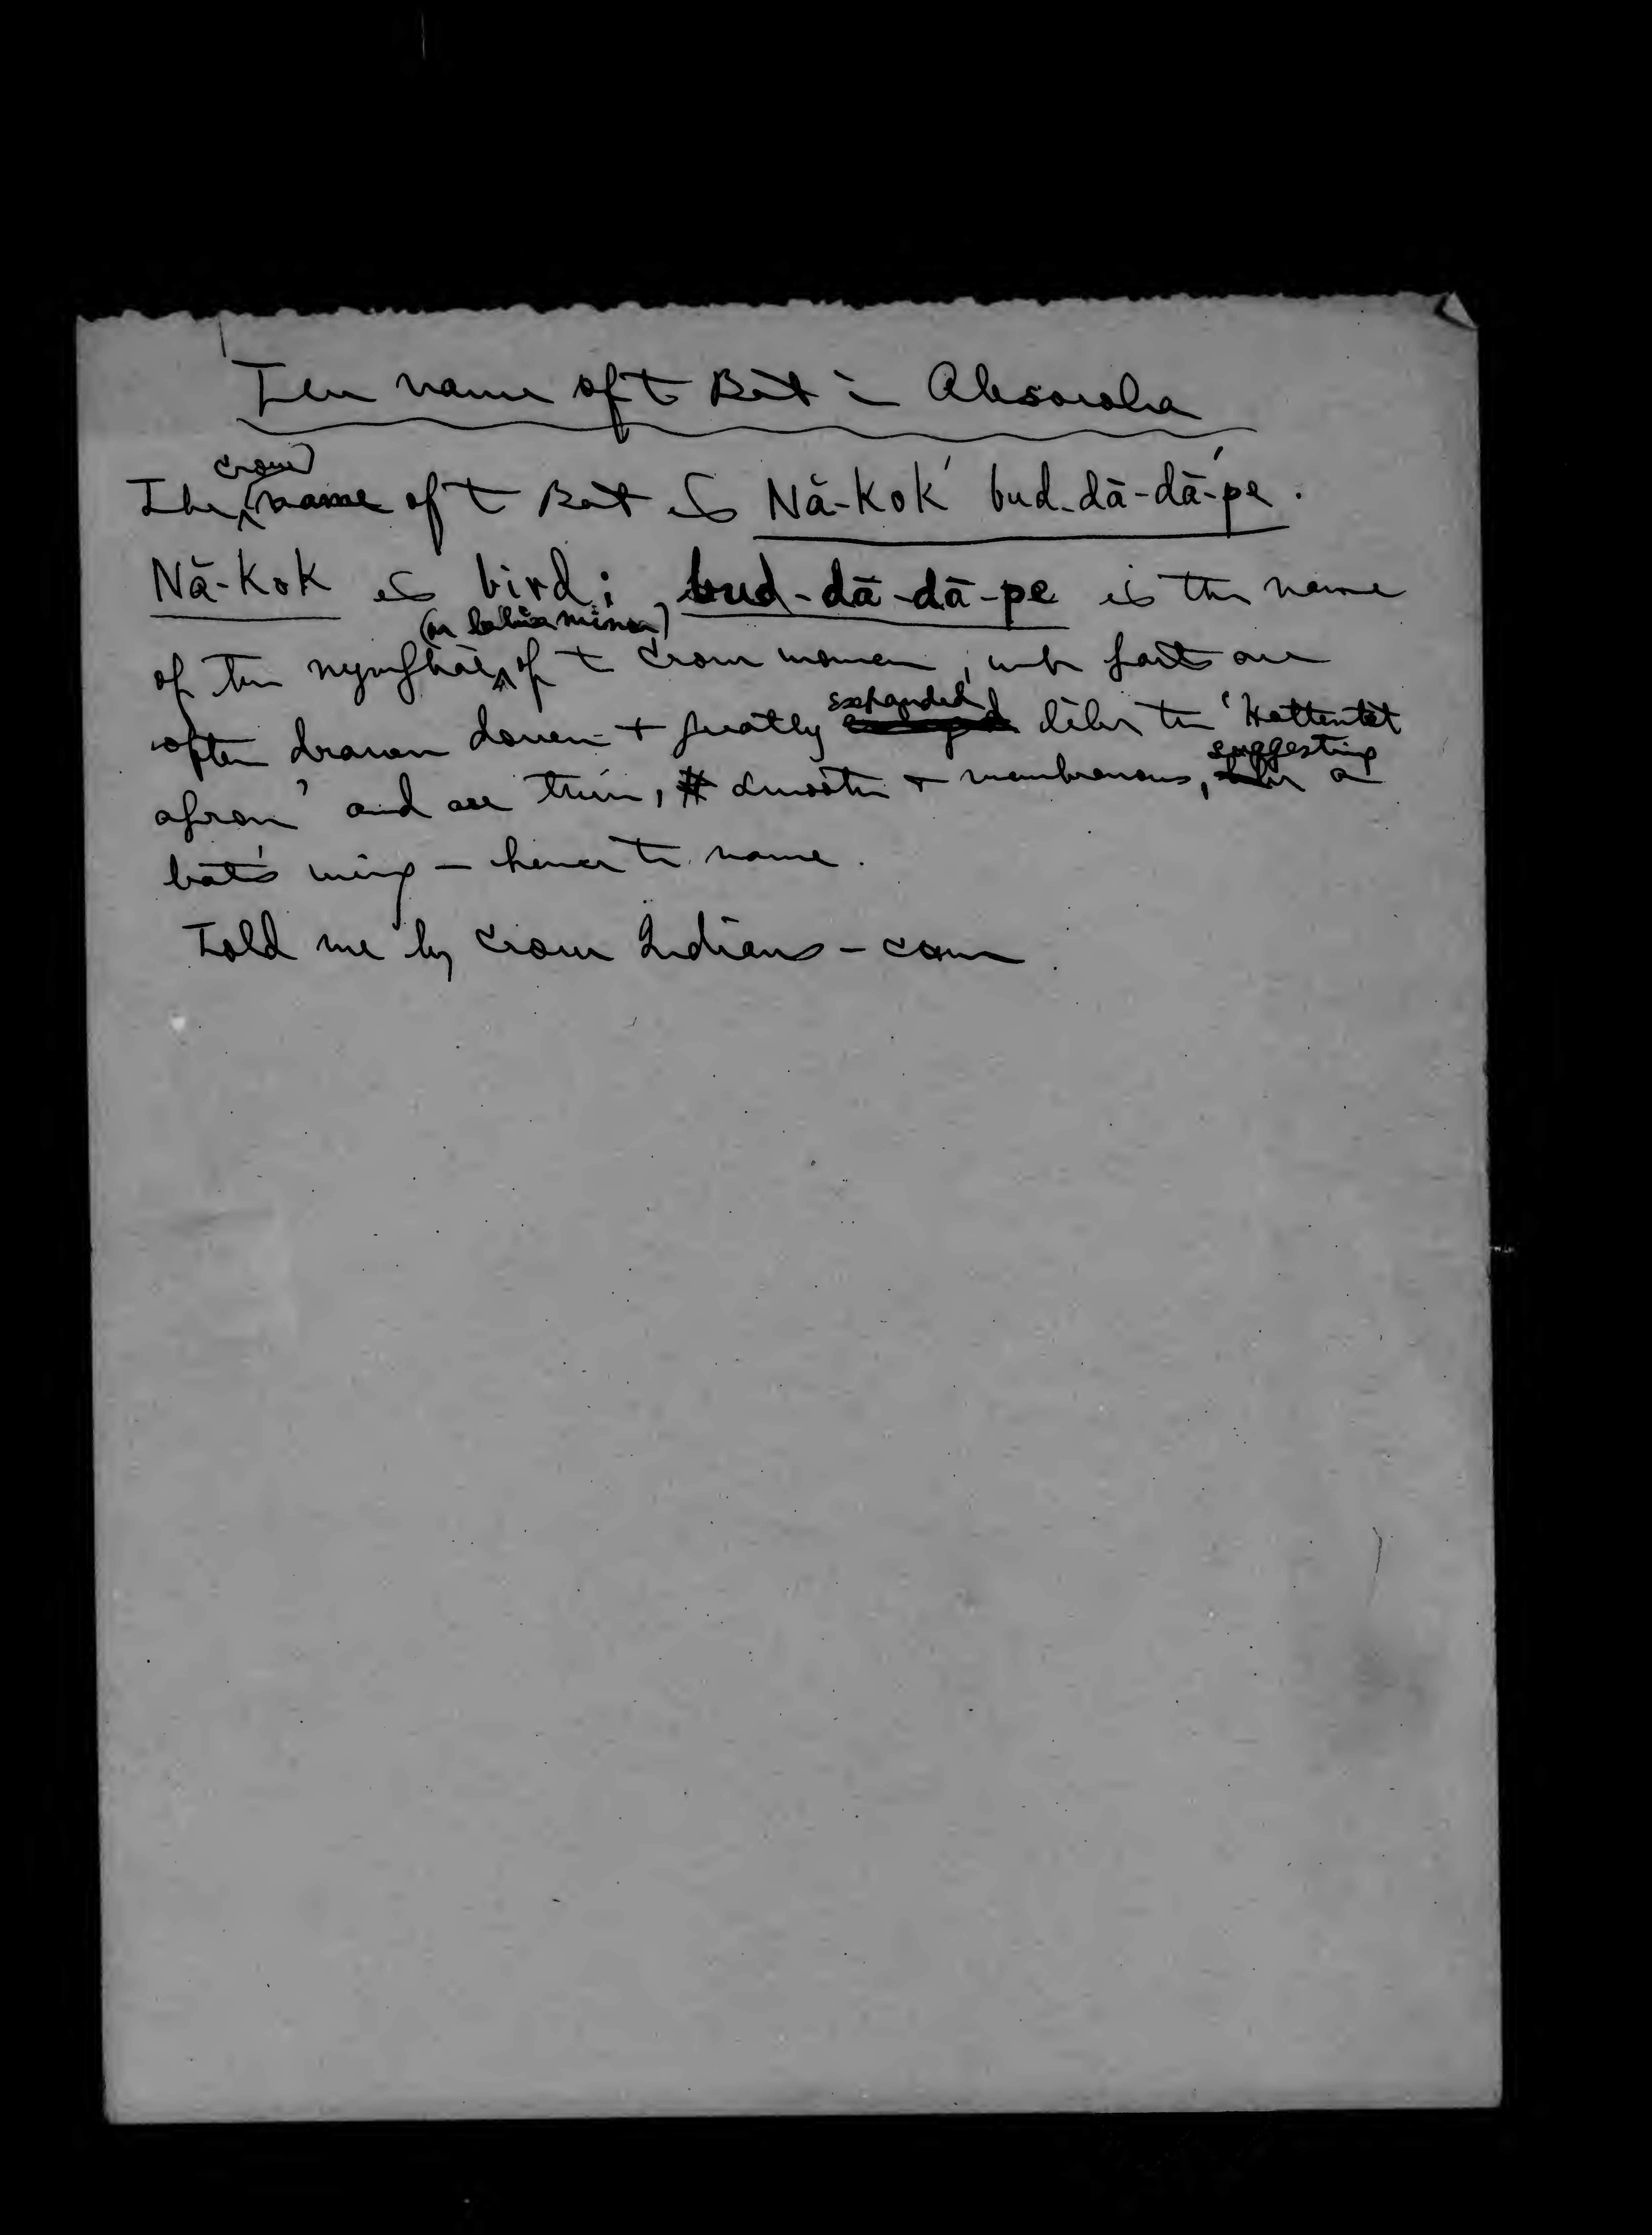 The name of t Bat in Absaroka
The Crow name of t Bat is Nă-kok′ bud-dā-dā′-pe.
Nă-kok is bird; bud-dā-dā-pe is the name
of the nymphae (or labia minora) of t Crow women, wh parts are
often drawn down + greatly expanded like the 'Hottentot
apron' and are thin, smooth + membranous, suggesting a
bat's wing — hence the name.
Told me by Crow Indians — CHM